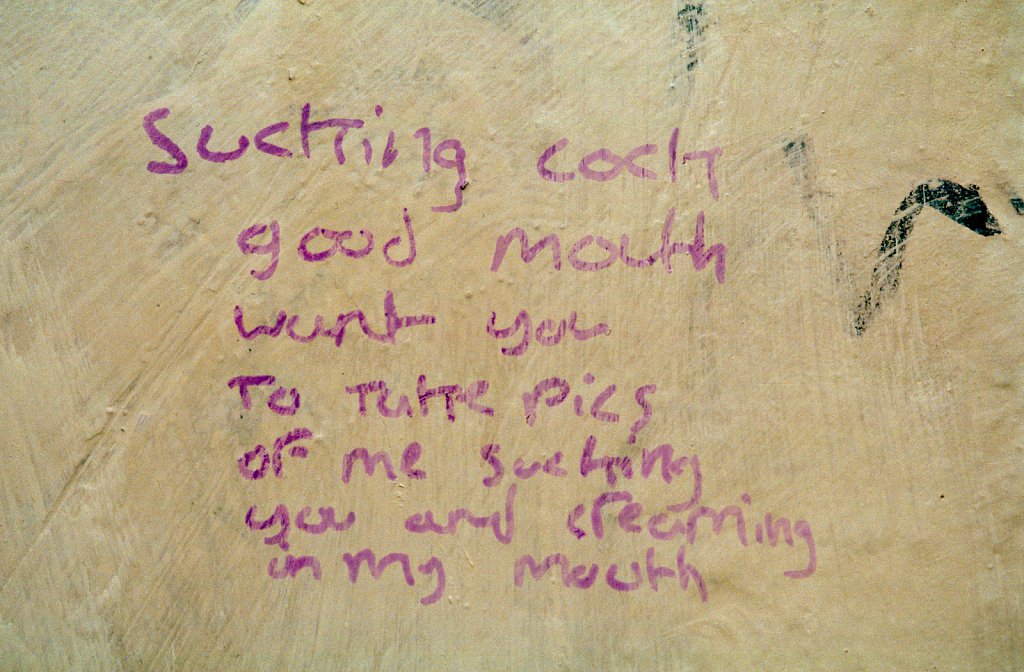 Sucking cock
good mouth
want you
To take pics
of me sucking
you and creaming
in my mouth